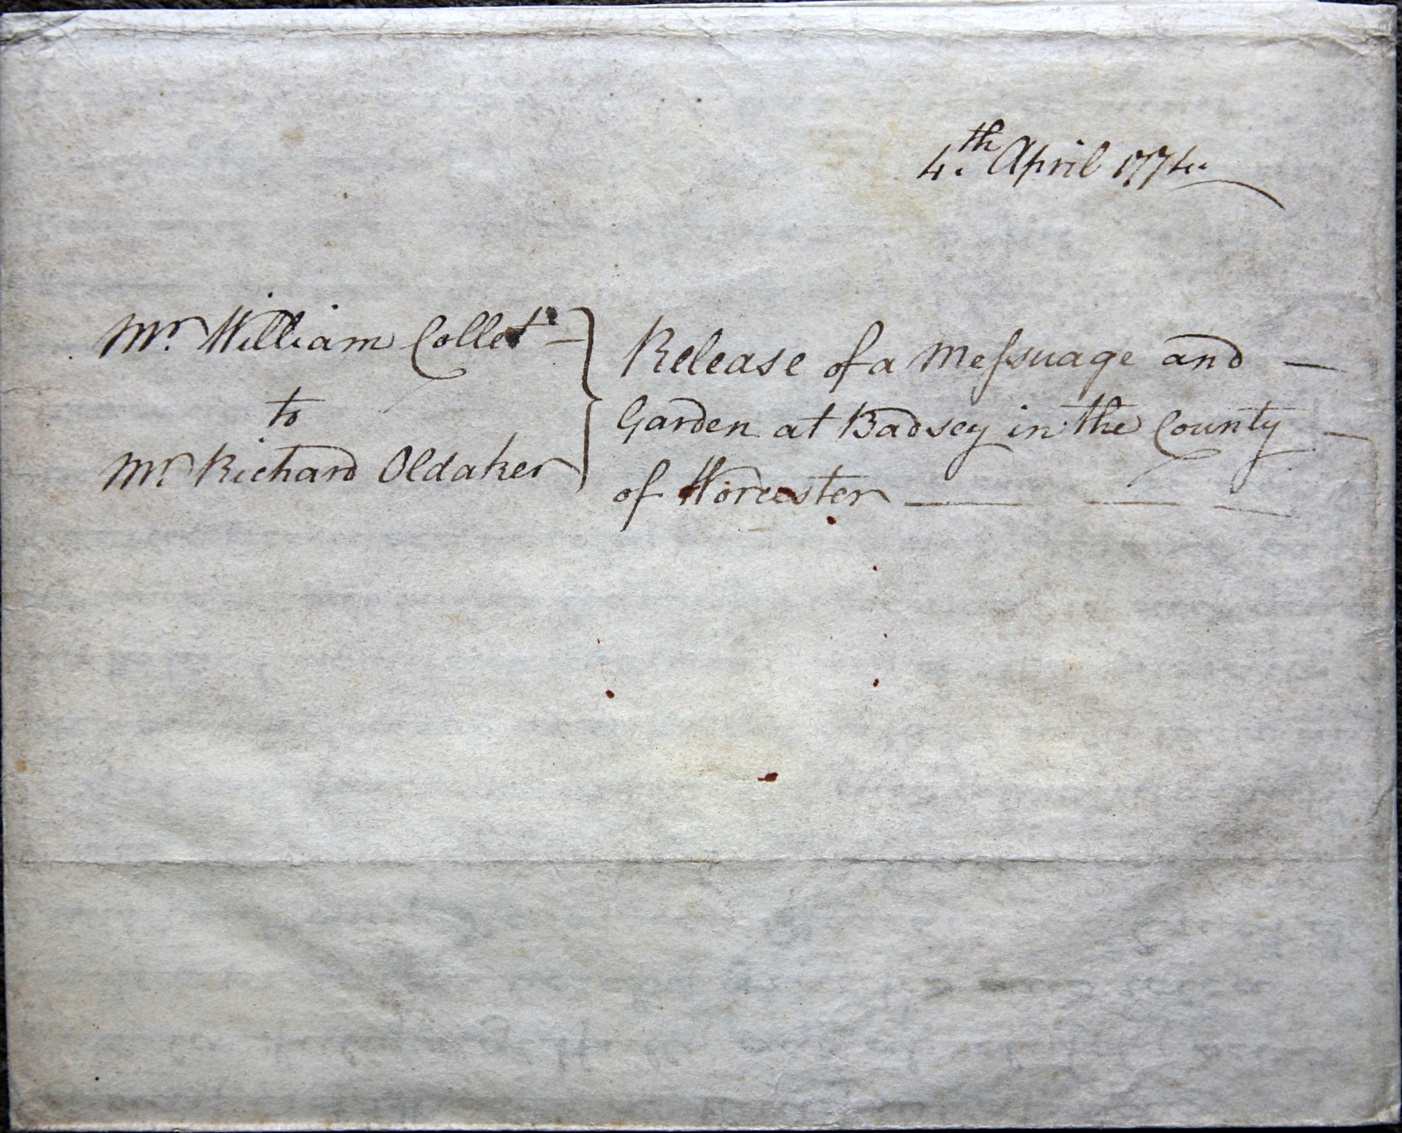 4th. April 1774
Mr. William Collet
to
Mr. Richard Oldaker
Release of a Meſsuage and
Garden at Badsey in the County
of Worcester